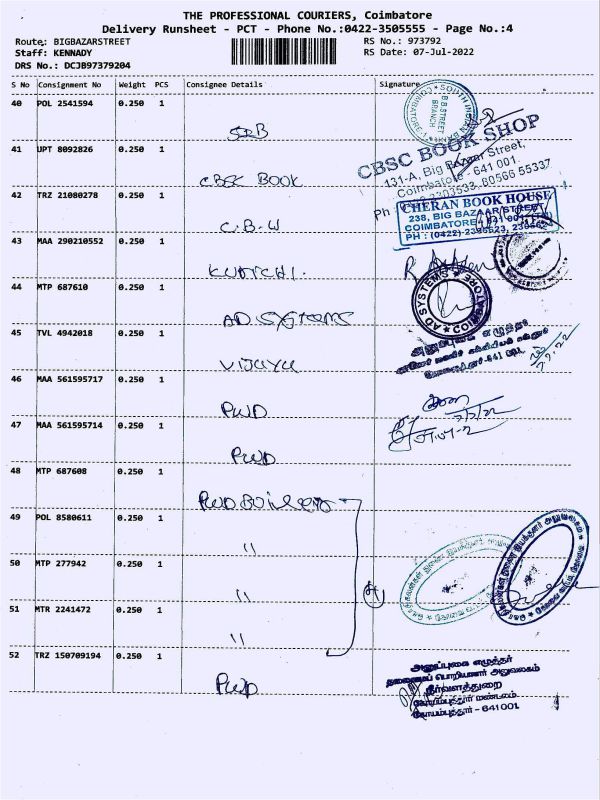 THE PROFESSIONAL COURIERS, Coimbatore
Delivery Runsheet - PCT - Phone No.:0422-3505555 - Page No.:4
Route: BIGBAZARSTREET
RS No.: 973792
Staff: KENNADY
RS Date: 07-Jul-2022
DRS No.: DCJB97379204
S No Consignment No Weight PCS Consignee Details Signature
40 POL 2541594 0.250 1
SOUTH INDIAN BANK
B.B.STREET
BRANCH
COIMBATORE-1
SIB
41 UPT 8092826 0.250 1
CBSC BOOK SHOP
131-A, Big Bazaar Street,
Coimbatore - 641 001.
CBSC BOOK
42 TRZ 21080278 0.250 1
CHERAN BOOK HOUSE
238, BIG BAZAAR STREET
COIMBATORE - 641 001 (TN)
C.B.W
43 MAA 290210552 0.250 1
44 MTP 687610 0.250 1
AD SYSTEMS
COIMBATORE
AD SYSTEMS
45 TVL 4942018 0.250 1
அலுவலக எழுத்தர்
VIJAYA
46 MAA 561595717 0.250 1
PWD
47 MAA 561595714 0.250 1
PWD
48 MTP 687608 0.250 1
PWD
49 POL 8580611 0.250 1
"
50 MTP 277942 0.250 1
"
51 MTR 2241472 0.250 1
"
52 TRZ 150709194 0.250 1
PWD
அனுப்புகை எழுத்தர்
தலைமைப் பொறியாளர் அலுவலகம்
நீர்வளத்துறை
கோயம்புத்தூர் மண்டலம்
கோயம்புத்தூர் - 641001